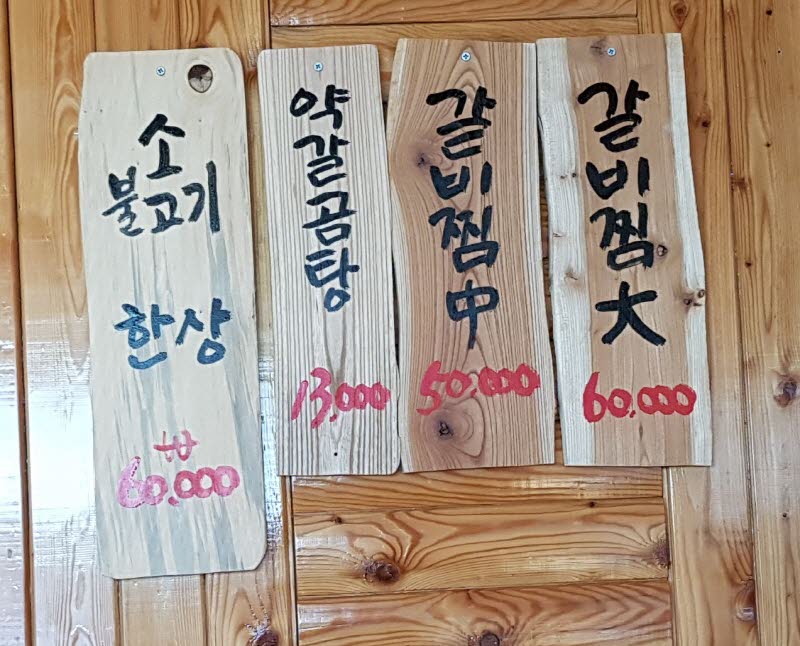 소
불고기
한상
₩
60,000
약갈곰탕
13,000
갈비찜中
50,000
갈비찜大
60,000